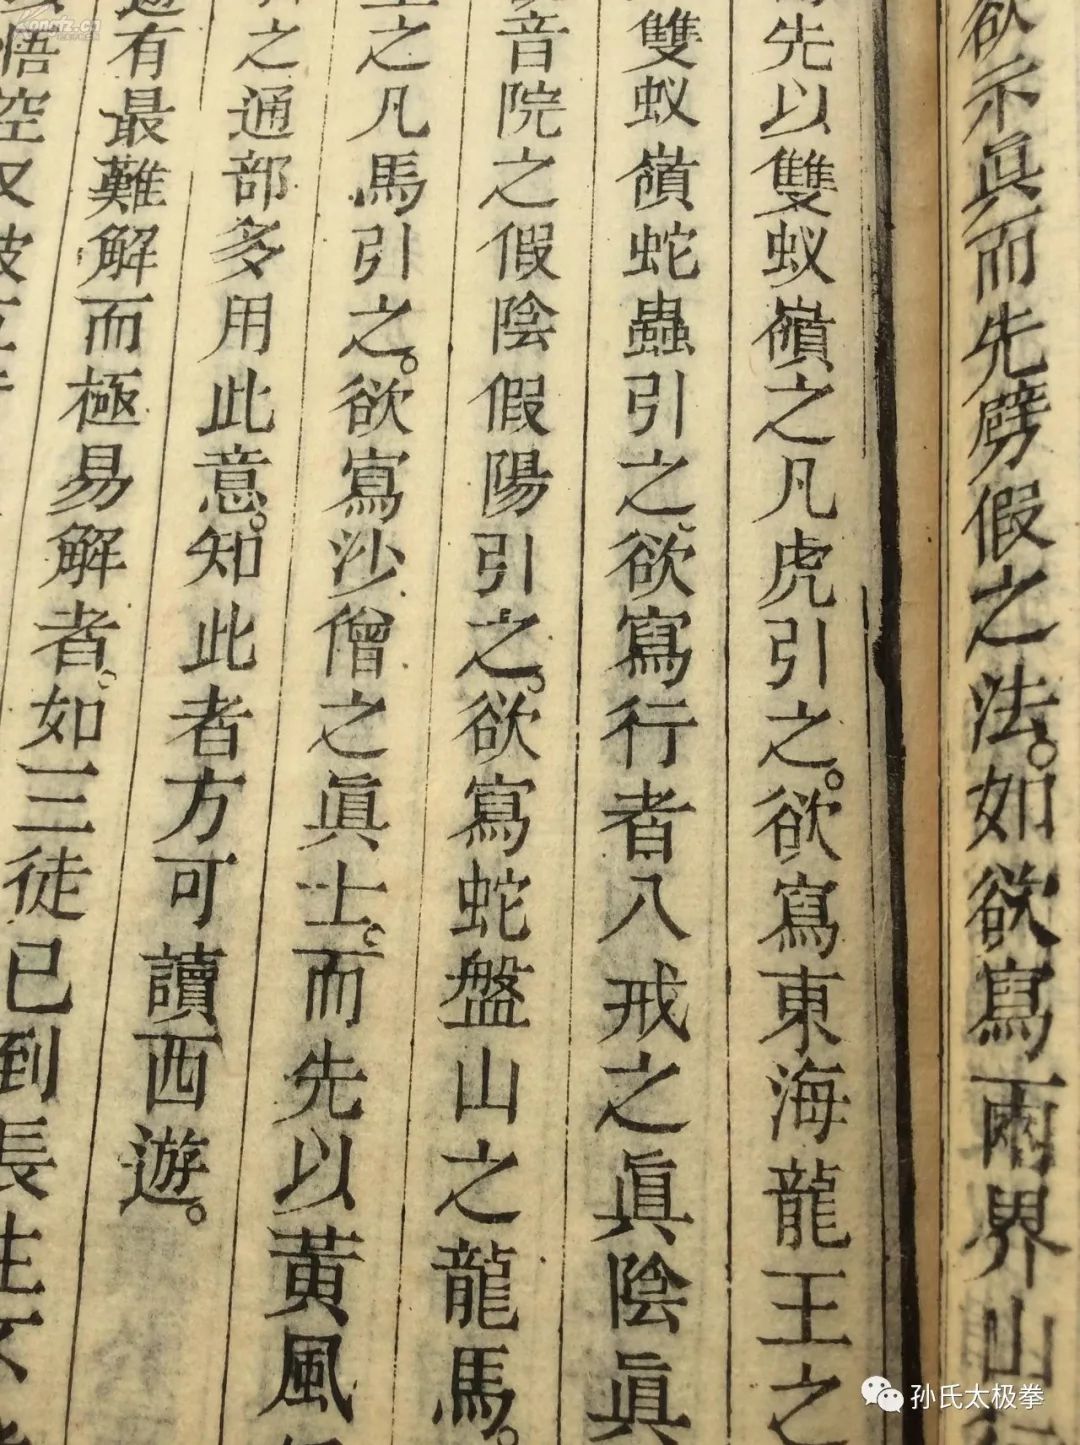 欲示眞而先劈假之法。如欲寫兩界山
先以雙蚁嶺之凡虎引之。欲寫東海龍王之
雙蚁嶺蛇蟲引之。欲寫行者八戒之眞陰眞
音院之假陰假陽引之。欲寫蛇盤山之龍馬。
之凡馬引之。欲寫沙僧之眞土。而先以黃風
之通部多用此意。知此者方可讀西遊。
有最難解而極易解者。如三徒已到長生不
悟空又被
kongfz.cn
孙氏太极拳